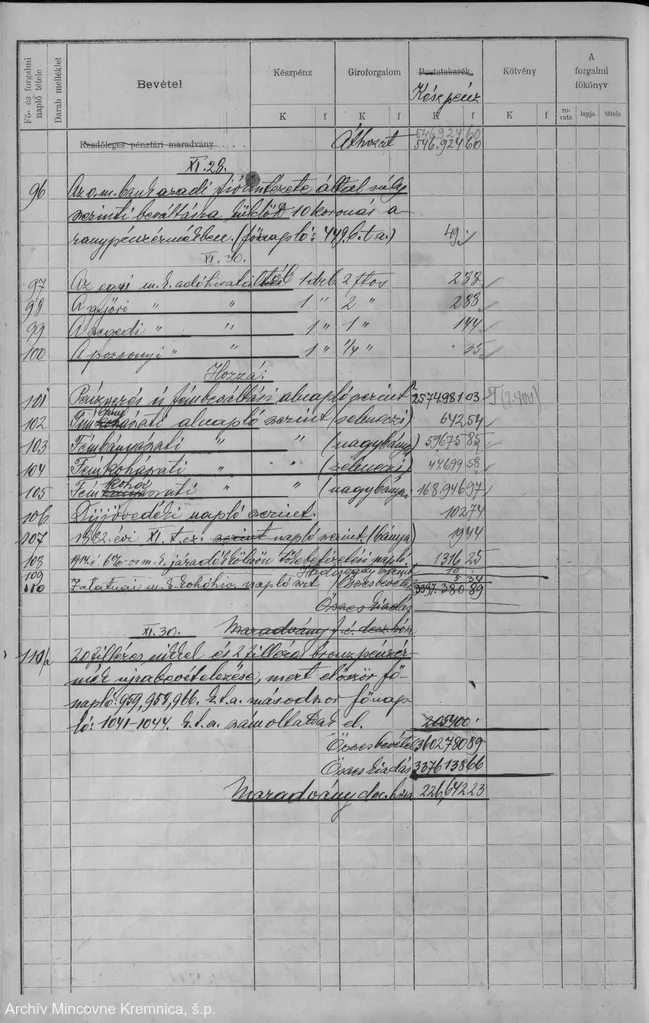 Fő- és forgalmi napló tétele
Darab melléklet
Bevétel
Készpénz
Giroforgalom
Postatakarék
Kötvény
A forgalmi főkönyv
Készpénz
K f K f K f K f rovata lapja tétele
Kezdőleges pénztári maradvány Áthozat 546.924 60
546.924 60
XI. 28.
96 Az o. m. bank aradi fiókintézete által súly
szerinti beváltásra küldött 10 koronás a
ranypénzérmékben (főnapló: 449. k.t.a.) 49
XI. 30.
97 Az egri m. k. adóhivataltól 1 drb. 2 ftos 288
98 A győri " " 1 " 2 " 288
99 A szegedi " " 1 " 1 " 144
100 A pozsonyi " " 1 " 1/4 " 35
Hozzá:
101 Pénzverés és fémbeváltási alnapló szerint 2574981 03
102 alnapló szerint (selmeczi) 642 54
103 Fémbányászati " " (nagybányai) 59675 85
104 Fémkohászati " " (selmeczi) 44699 58
105 " " (nagybányai) 168.946 97
106 napló szerint 102 74
107 1882. évi XI. t. cz. szerint napló szerint (bánya) 19 44
108 1316 25
109
110 Zalatnai m. k. kohóhiv. napló szt. 3397.380 89
Összes kiadás
XI. 30. Maradvány f. é. dec. hóra
110/a 20 filléres nikkel és 2 filléres bronzpénzér
mék ujrabevételezése, mert először fő-
napló: 959, 958, 966. k.t.a. másodszor főnap
ló: 1041-1044. k.t.a. számoltattak el. 205400
Összes bevétel 3602780 89
Összes kiadás 3376138 66
Maradvány dec. hóra 226,642 23
Archív Mincovne Kremnica, š.p.